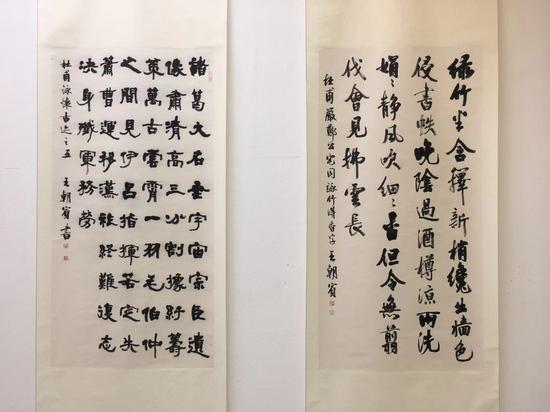 綠竹半含籜新梢纔出墙色
侵書帙晚陰過酒樽涼雨洗
娟〻靜風吹細〻香但令無翦
伐會見拂雲長
杜甫嚴鄭公宅同詠竹得香字 王朝賓
諸葛大名垂宇宙宗臣遺
像肅清高三分割據紆籌
策萬古雲霄一羽毛伯仲
之間見伊吕指揮若定失
蕭曹運移漢祚終難復志
決身殲軍務勞
杜甫詠懷古迹之五 王朝賓書